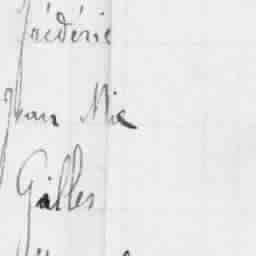 Frédéric
Jean Mic
Gilles